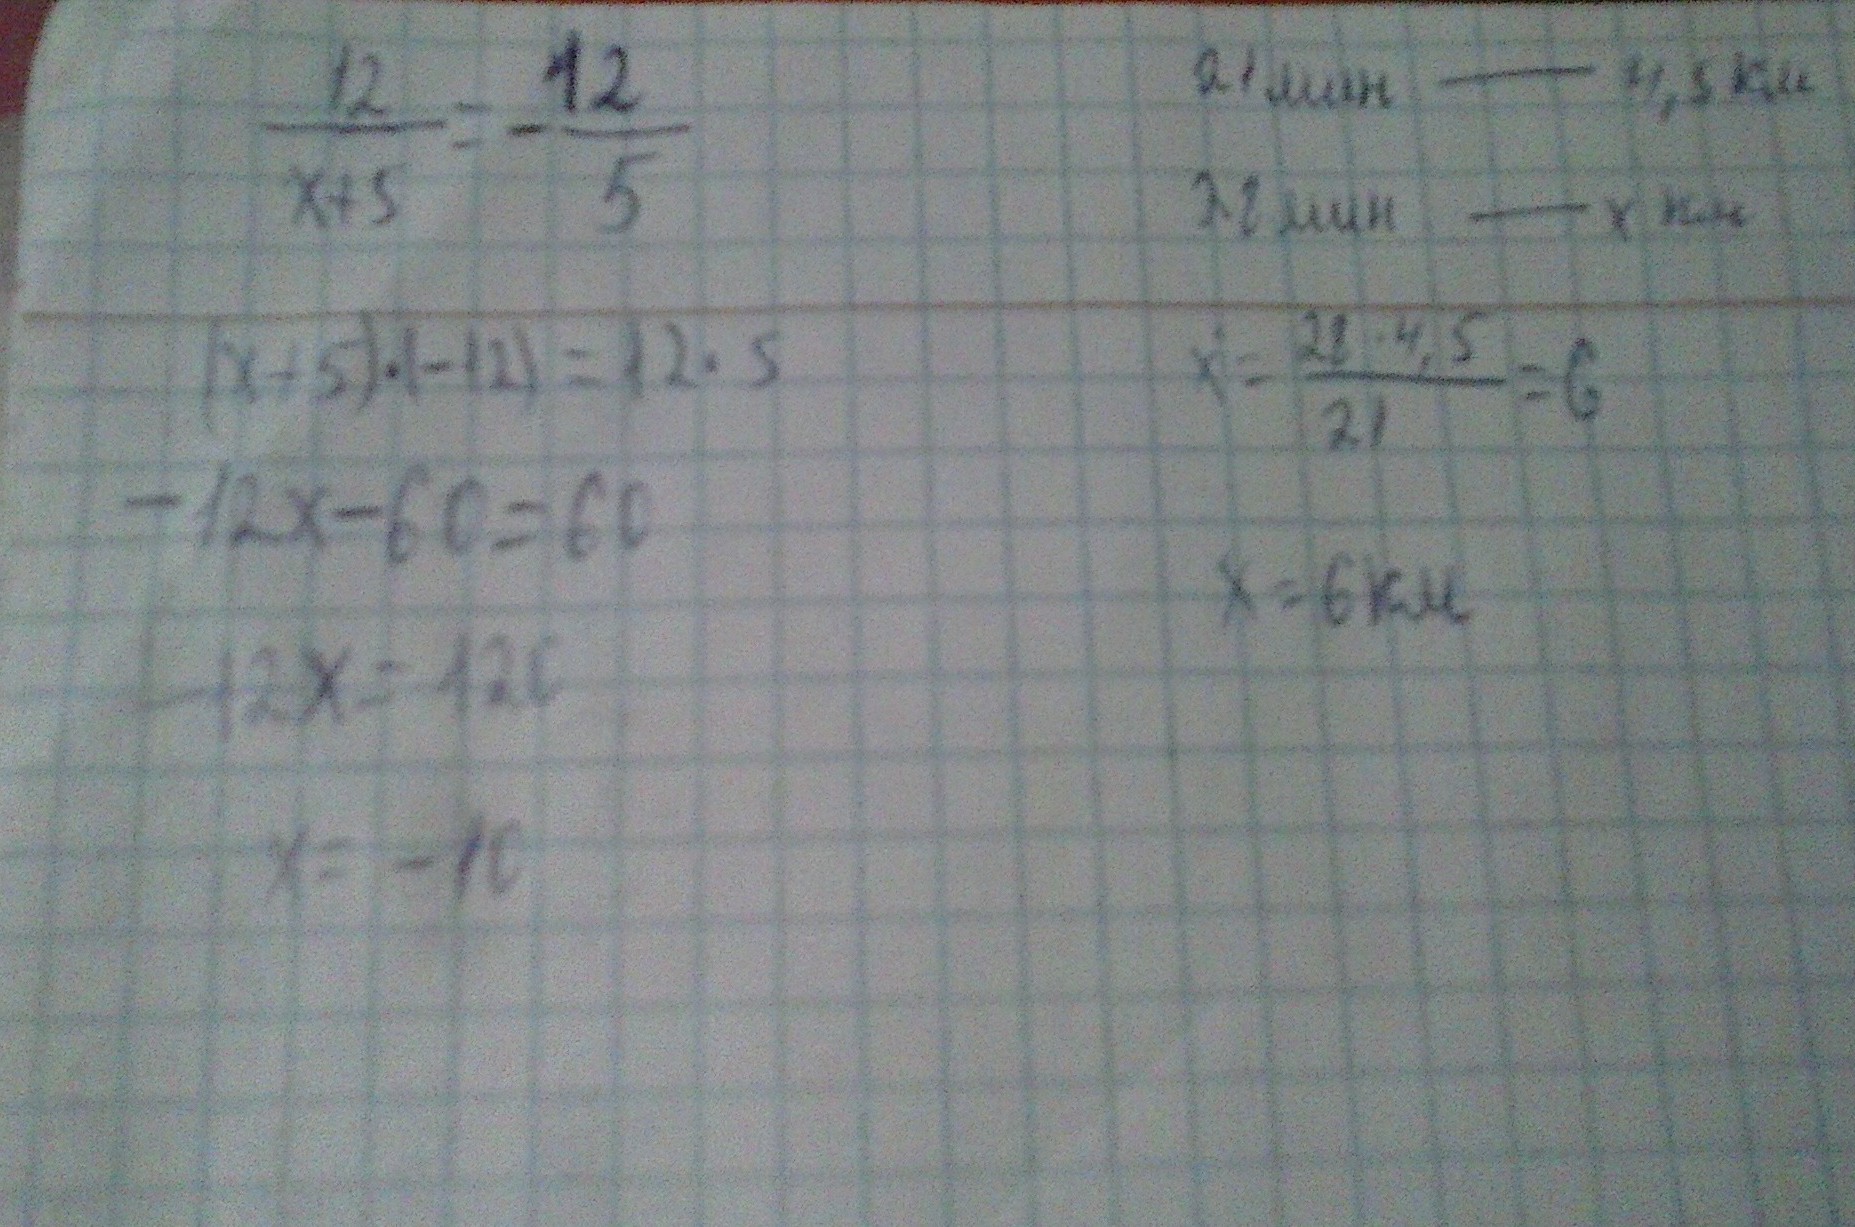 12/(x+5) = -12/5
(x+5)·(-12) = 12·5
-12x-60=60
-12x=120
x= -10
21 мин — 4,5 км
28 мин — x км
x = (28·4,5)/21 = 6
x = 6 км